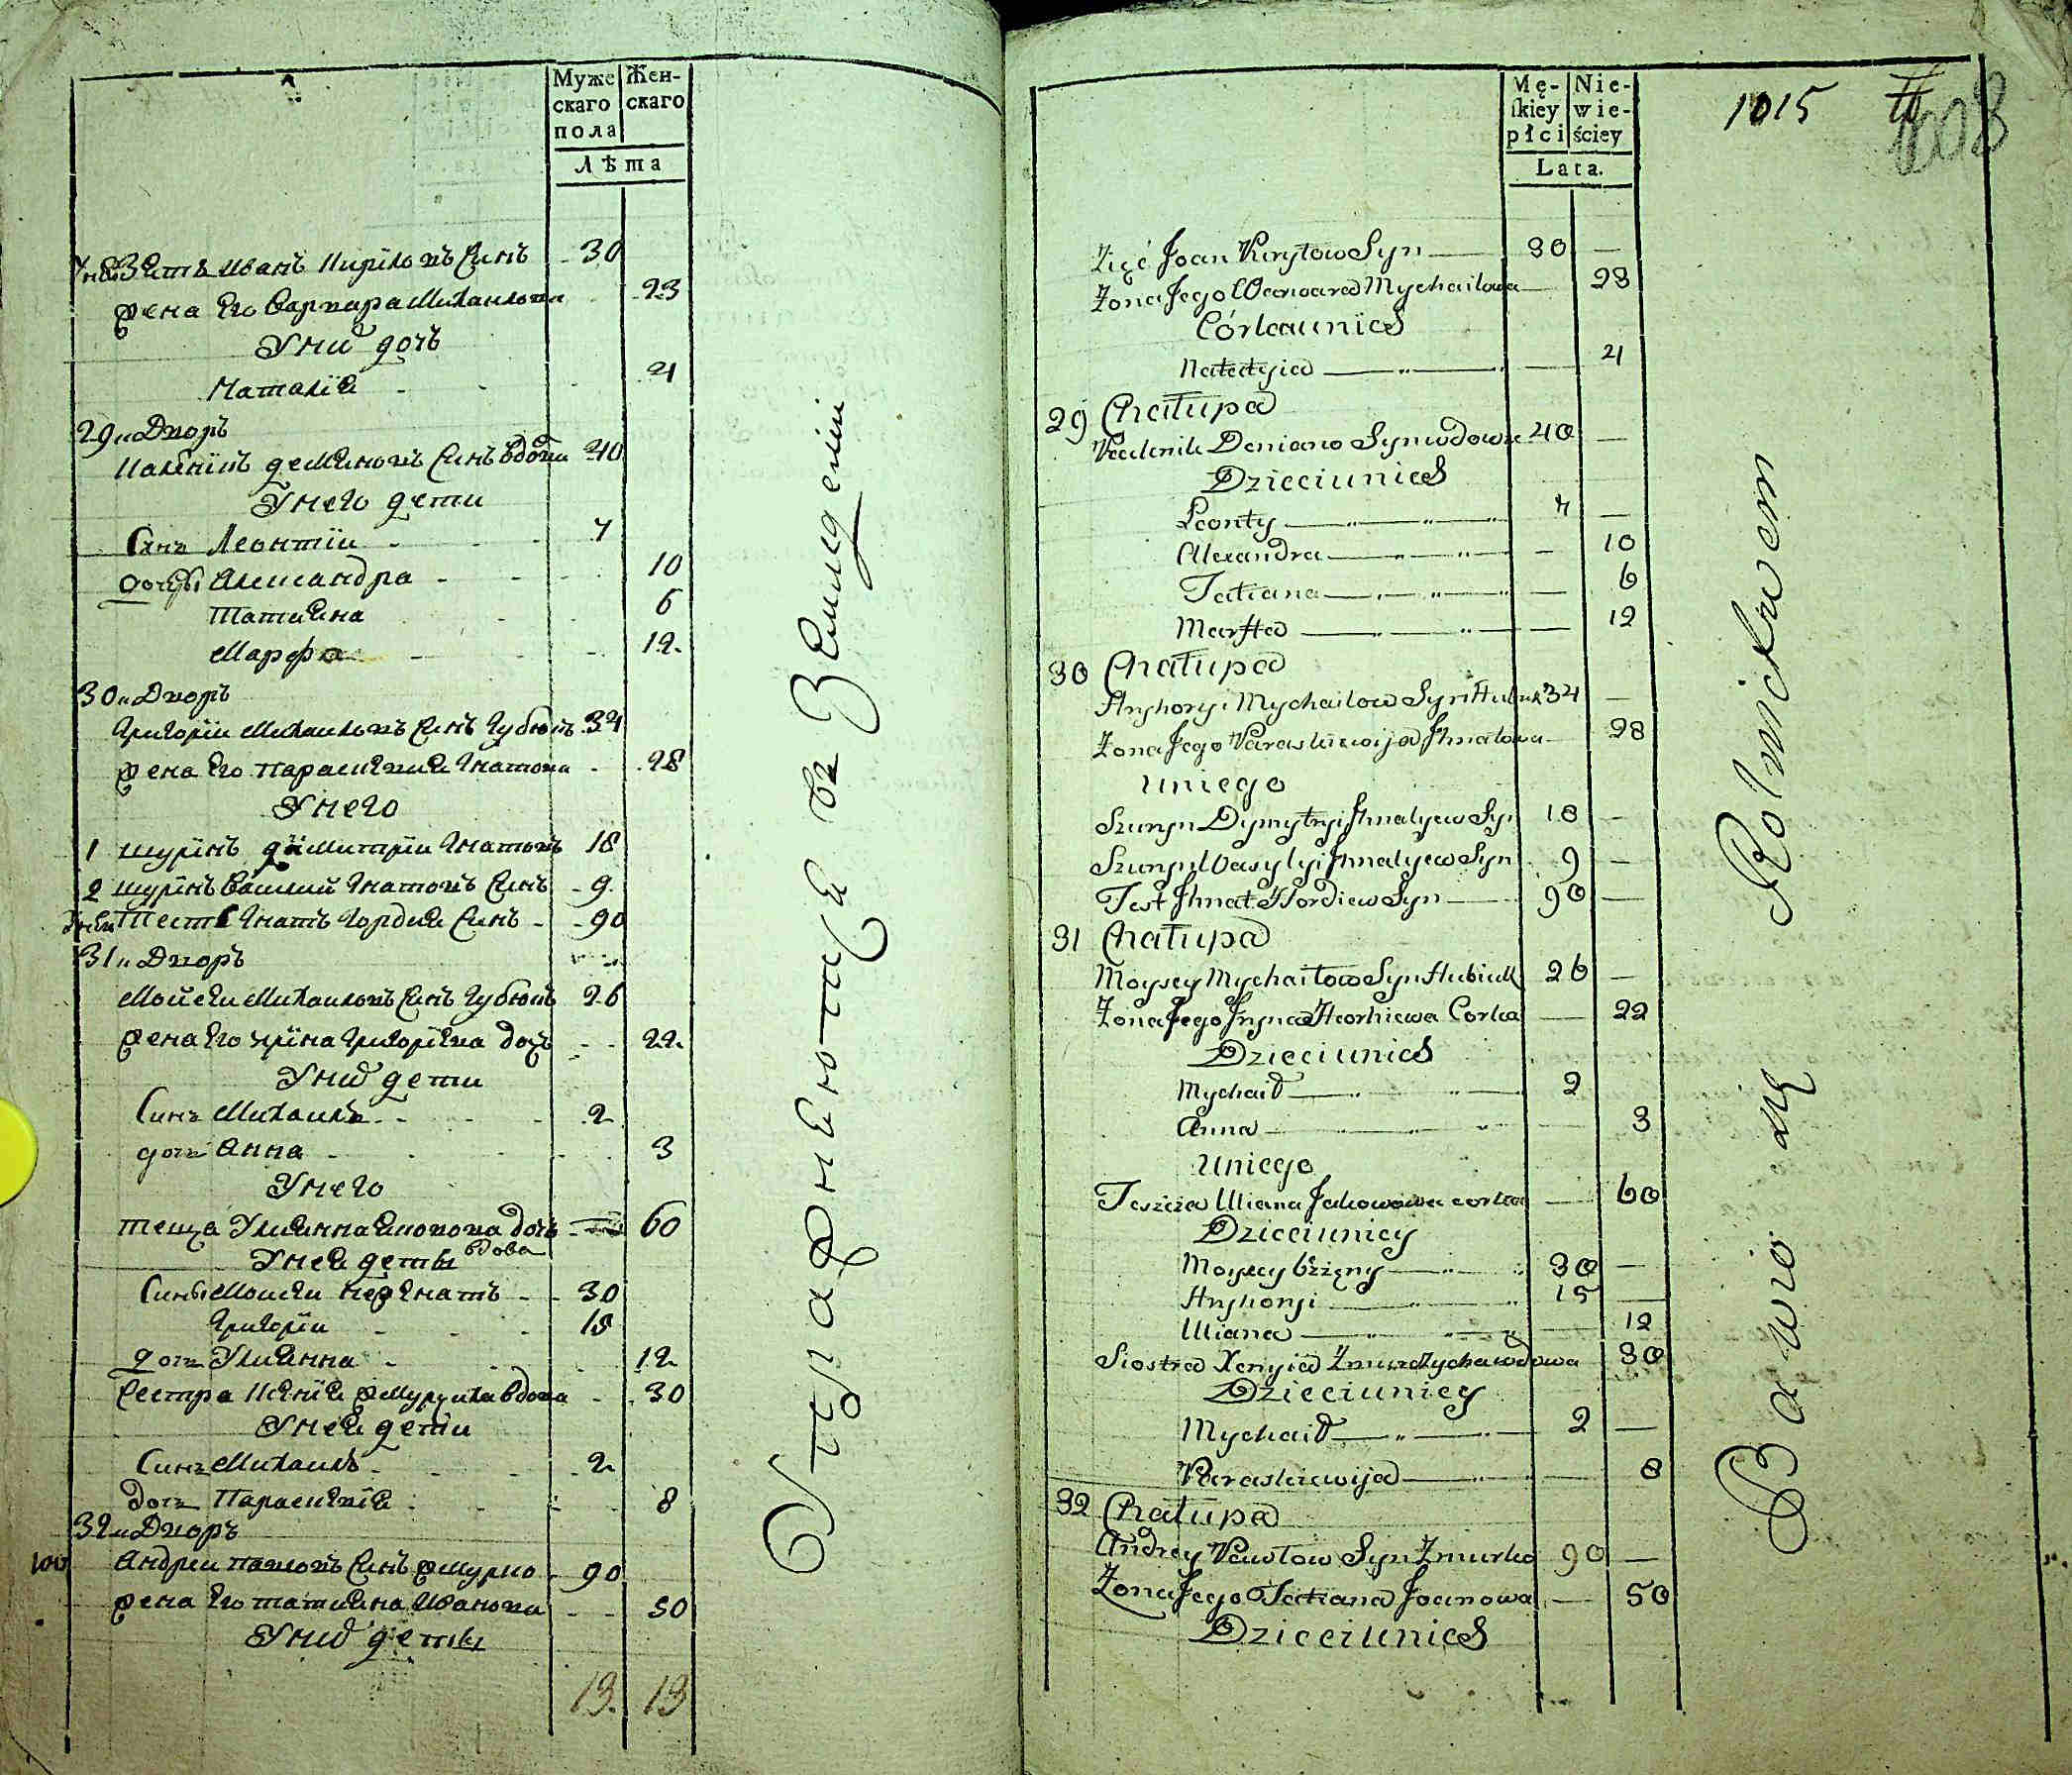 Муже
скаго
пола
Жен-
скаго
Лѣта
Зять Иванъ Кириловъ Синъ 30
жена Его Варвара Михаилова 23
У них дочь
Наталія 4
29 и Дворъ
Калѣникъ демяновъ Синъ вдовы 40
У него дети
Синъ Леонтіи 7
дочери Александра 10
Татияна 6
Марфа 12
30 и Дворъ
Григоріи Михаиловъ Синъ Губюкъ 34
жена Его Параскѣвия Гнатова 28
У него
1 шурінъ димитріи Гнатовъ 18
2 шурінъ Василий Гнатовъ Синъ 9
Тесть Гнатъ Гордия Синъ 90
31 и Дворъ
Мойсеи Михаиловъ Синъ Губюкъ 26
жена Его Iріна Григоріева дочь 22
У них дети
Синъ Михаилъ 2
дочь Анна 3
У него
теща Улиянна Яковова дочь вдова 60
У неи деты
Сины Моисеи не женатъ 30
Григоріи 15
дочь Улиянна 12
Сестра Ксенія жмурчиха вдова 30
У неи дети
Синъ Михаилъ 2
дочь Параскѣвія 8
32 и Дворъ
100 Андреи павловъ Синъ жмурко 90
жена Его татияна Иванова 50
У них деты
13. 13
Упражняются въ Земледелии
Mę-
skiey
płci
Nie-
wie-
ściey
Lata.
1015
1008
Zięć Joan Kiryłow Syn 30
Żona Jego Warwara Mychaiłowa 23
Córka u nich
Natalyia 4
29 Chałupa
Kalenik Demiano Syn wdowy 40
Dzieci u niego
Leonty 7
Alexandra 10
Tatiana 6
Marfta 12
30 Chałupa
Hryhoryi Mychaiłow Syn Hubiuk 34
Żona Jego Paraskiewija Jhnatowa 28
u niego
Szuryn Dymytryi Jhnatyew Syn 18
Szuryn Wasylyi Jhnatyew Syn 9
Test Jhnat Hordiew Syn 90
31 Chałupa
Moysey Mychaiłow Syn Hubiuk 26
Żona Jego Jryna Hrorhiewa Corka 22
Dzieci u nich
Mychaił 2
Anna 3
u niego
Teszcza Uliana Jakowowa corka 60
Dzieci u niey
Moysey 30
Hryhoryi 15
Uliana 12
Siostra Xenyia Żmurczycha wdowa 30
Dzieci u niey
Mychaił 2
Paraskiewija 8
32 Chałupa
Andrey Pawłow Syn Żmurko 90
Żona Jego Tatiana Joanowa 50
Dzieci u nich
Bawio się Rolnictwem